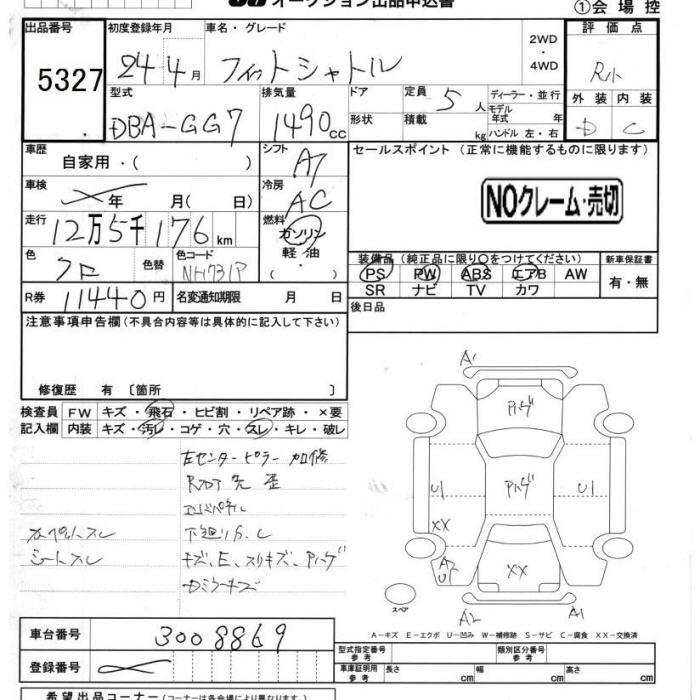 オークション出品申込書
①会場控
出品番号
5327
初度登録年月
24年4月
車名・グレード
フィットシャトル
2WD
・
4WD
評価点
外装 内装
D C
型式
DBA-GG7
排気量
1490cc
ドア
形状
定員 5人
積載 kg
ディーラー・並行
モデル
年式 年
ハンドル 左・右
車歴
自家用・( )
シフト
AT
セールスポイント (正常に機能するものに限ります)
車検
年 月(日)
冷房
AC
NOクレーム・売切
走行
12万5千176km
燃料
ガソリン
軽油
( )
色
クロ
色替
色コード
NH731P
装備品 (純正品に限り○をつけてください)
PS PW ABS エアB AW
SR ナビ TV カワ
新車保証書
有・無
R券 11440円
名変通知期限 月 日
後日品
注意事項申告欄 (不具合内容等は具体的に記入して下さい)
修復歴 有 〔箇所 〕
検査員 FW キズ・飛石・ヒビ割・リペア跡・×要
記入欄 内装 キズ・汚レ・コゲ・穴・スレ・キレ・破レ
左センターピラー加修
先歪
下廻りS.C
シートスレ
キズ、E、スリキズ、Pハゲ
ミラーキズ
A1
Pハゲ
U1
Pハゲ
U1
XX
A2
U1
XX
スペア
A2
A1
A-キズ E-エクボ U-凹み W-補修跡 S-サビ C-腐食 XX-交換済
車台番号
3008869
型式指定番号
参考
類別区分番号
参考
登録番号
車庫証明用
参考
長さ cm 幅 cm 高さ cm
希望出品コーナー (コーナーは各会場により異なります)